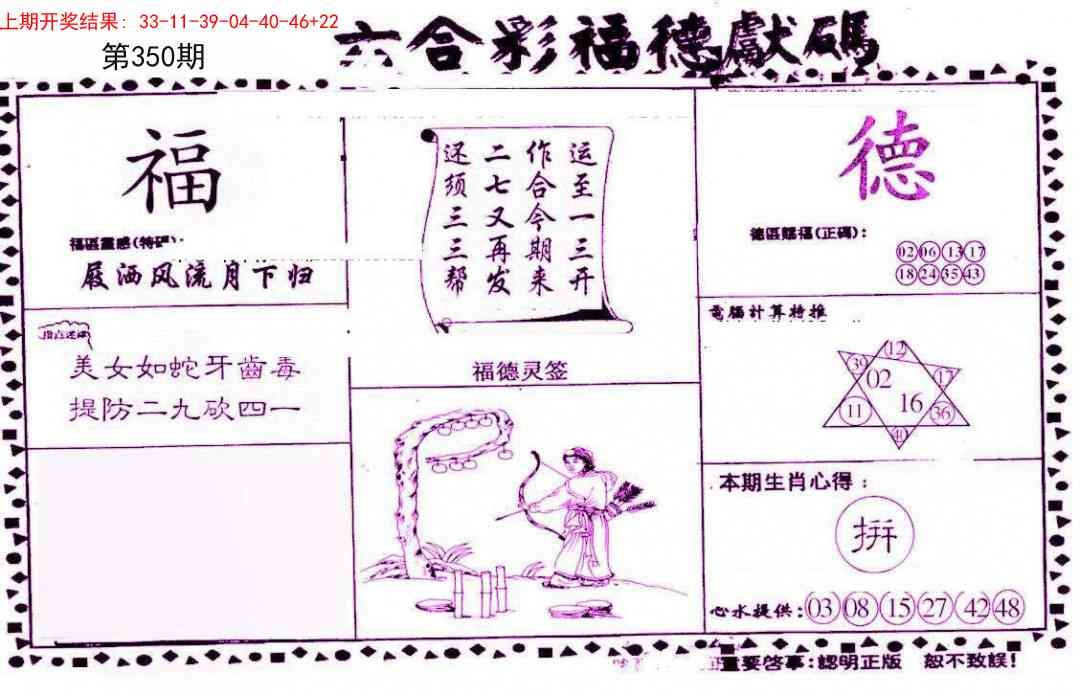 上期开奖结果：33-11-39-04-40-46+22
第350期
六合彩福德獻碼
福
福區靈感(特碼)：
屐洒风流月下归
美女如蛇牙齒毒
提防二九砍四一
运至一三开
作合今期来
二七又再发
还须三三帮
福德灵签
德
德區賜福(正碼)：
02 06 13 17
18 24 35 43
電腦計算特推
12
39 02 17
11 16 36
40
本期生肖心得：
拼
心水提供：03 08 15 27 42 48
重要啓事：認明正版 恕不致誤！